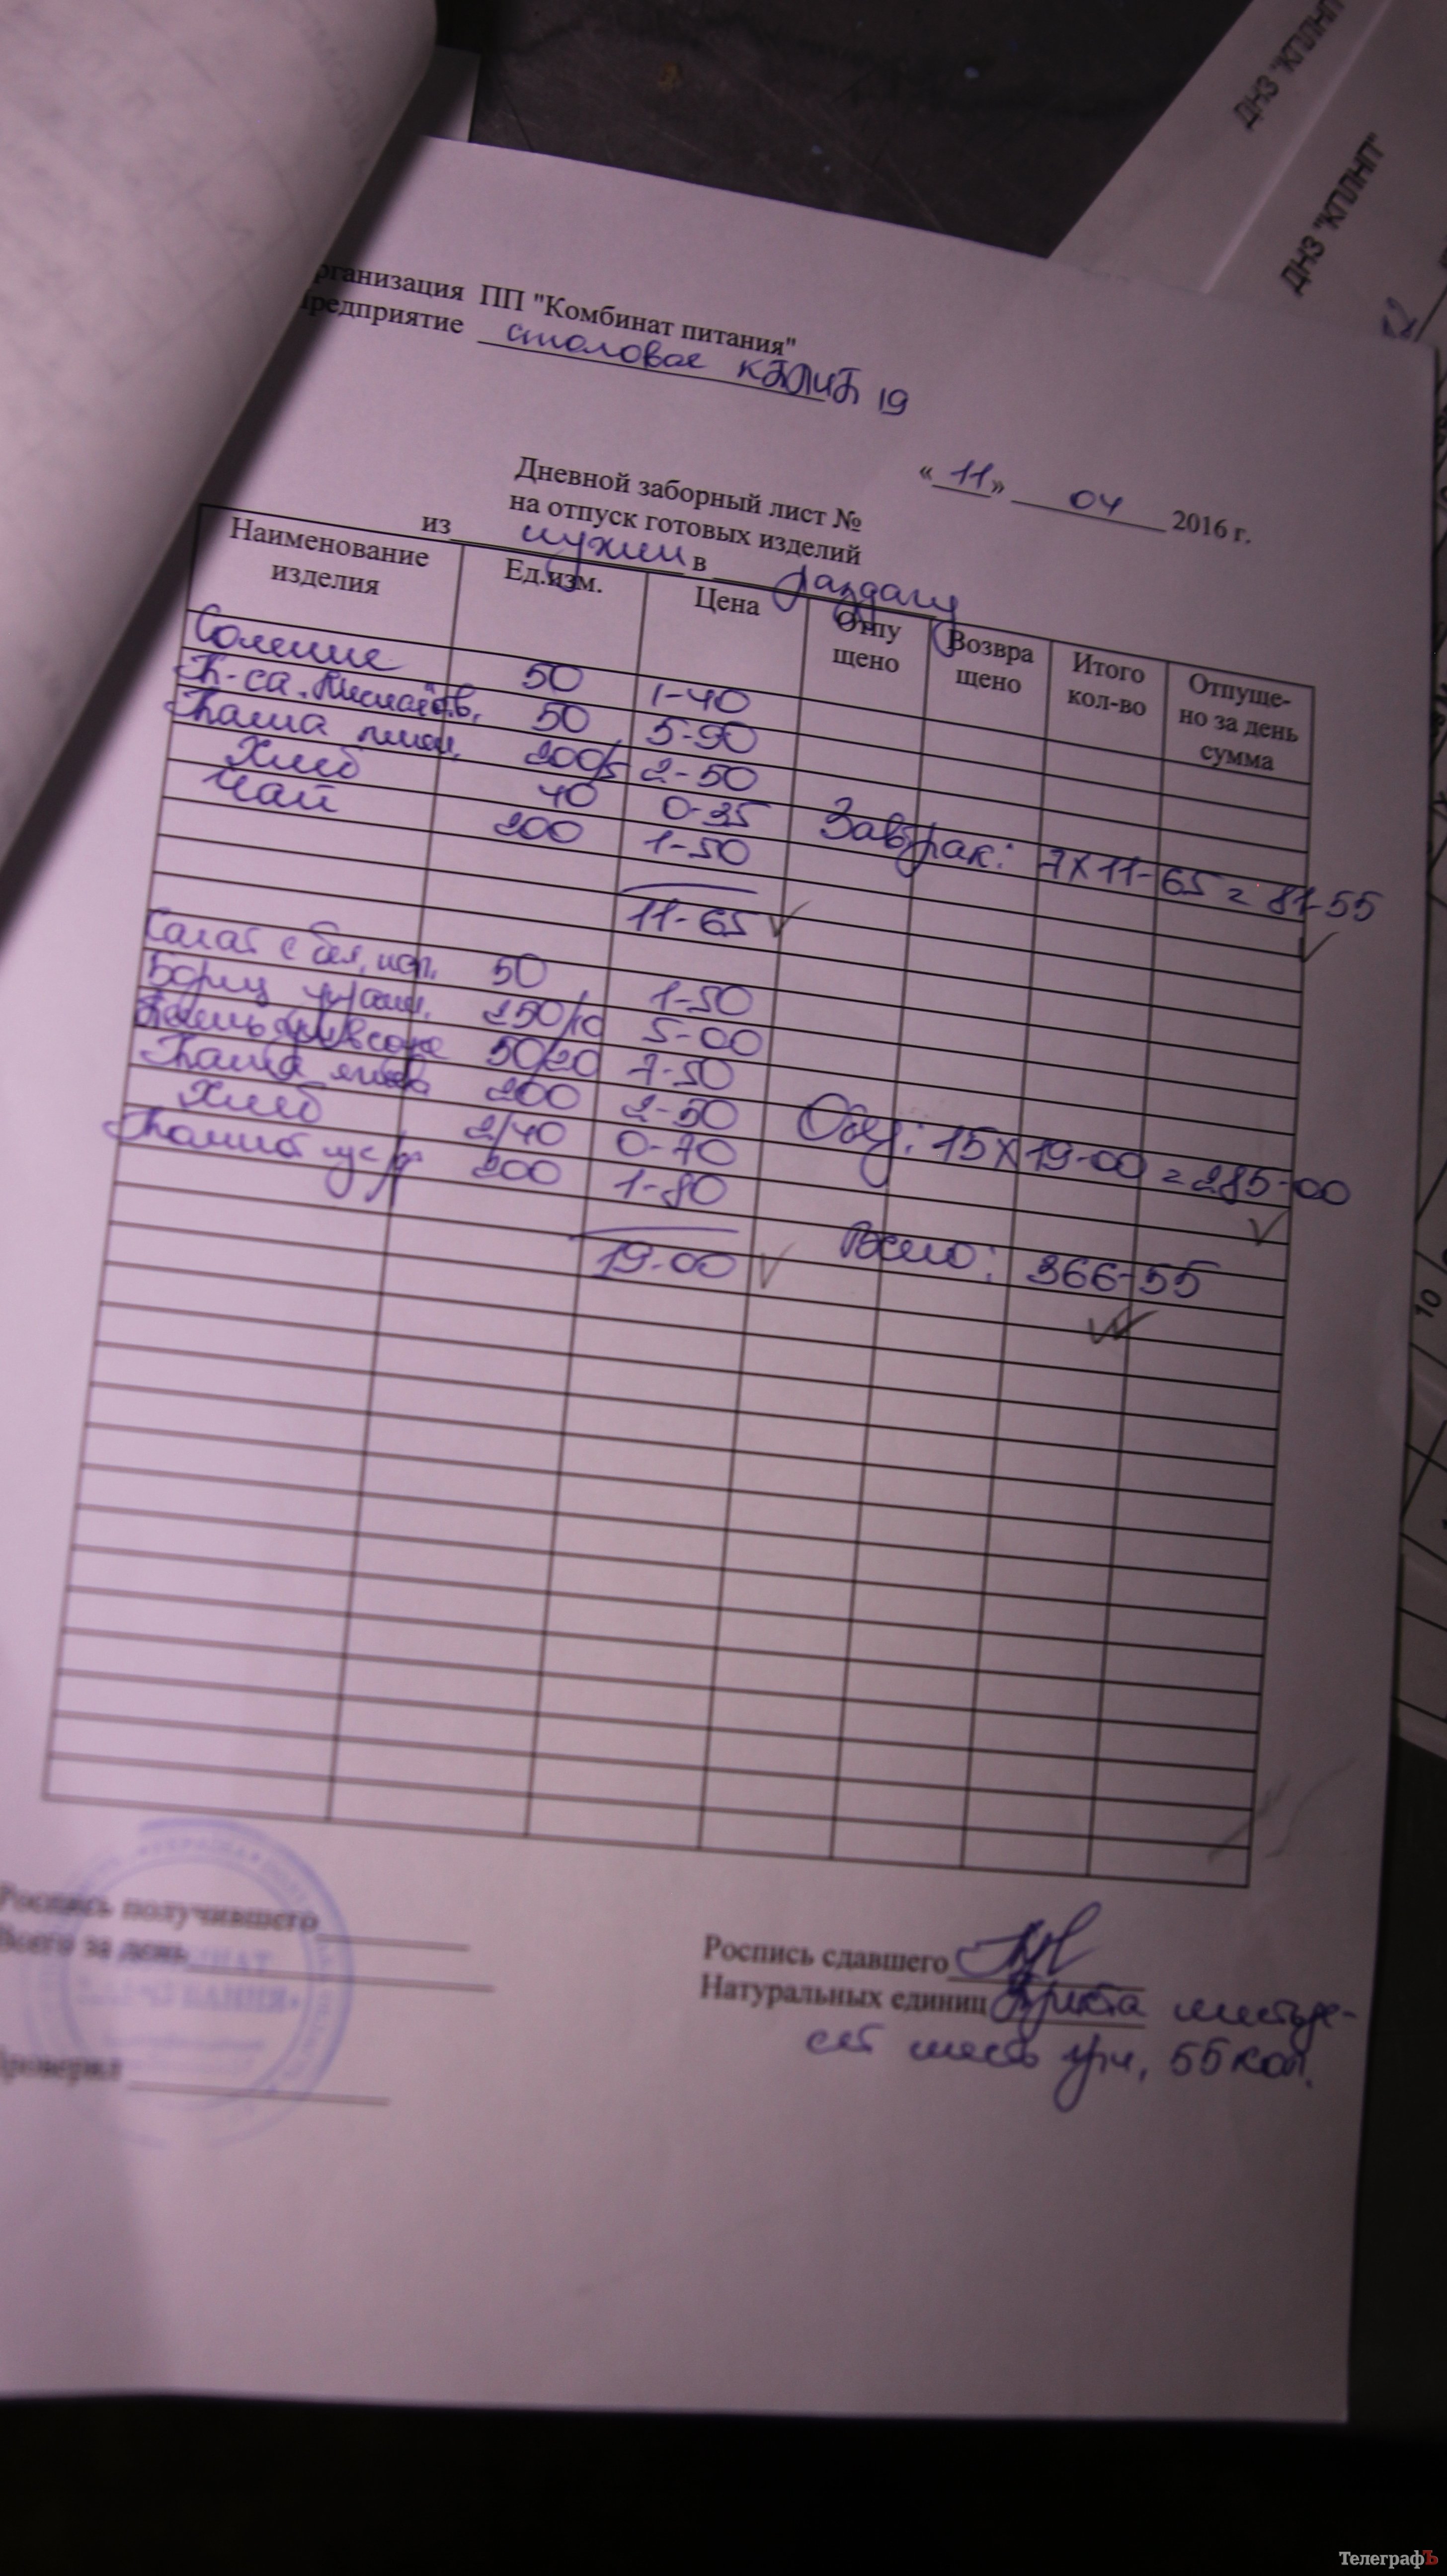 ДНЗ "КПЛНП"
ДНЗ "КПЛНП"
рганизация ПП "Комбинат питания"
предприятие столовая 19
« 11 » 04 2016 г.
Дневной заборный лист №
на отпуск готовых изделий
из кухни в раздачу
Наименование изделия Ед.изм. Цена Отпу щено Возвра щено Итого кол-во Отпуще- но за день сумма
Соление 50 1-40
К-са 50 5-90
Каша пшен. 200/5 2-50
Хлеб 40 0-35 Завтрак: 7х11-65=81-55
Чай 200 1-50
11-65
Салат с бел. 50 1-50
Борщ украин. 250/10 5-00
50/20 7-50
Каша 200 2-50
Хлеб 2/40 0-70 Обед: 15х19-00=285-00
200 1-80
Всего: 366-55
19-00
10
Роспись получившего
Роспись сдавшего
Всего за день
Натуральных единиц Триста шестьде-
сят шесть грн, 55 коп.
роверил
ТелеграфЪ